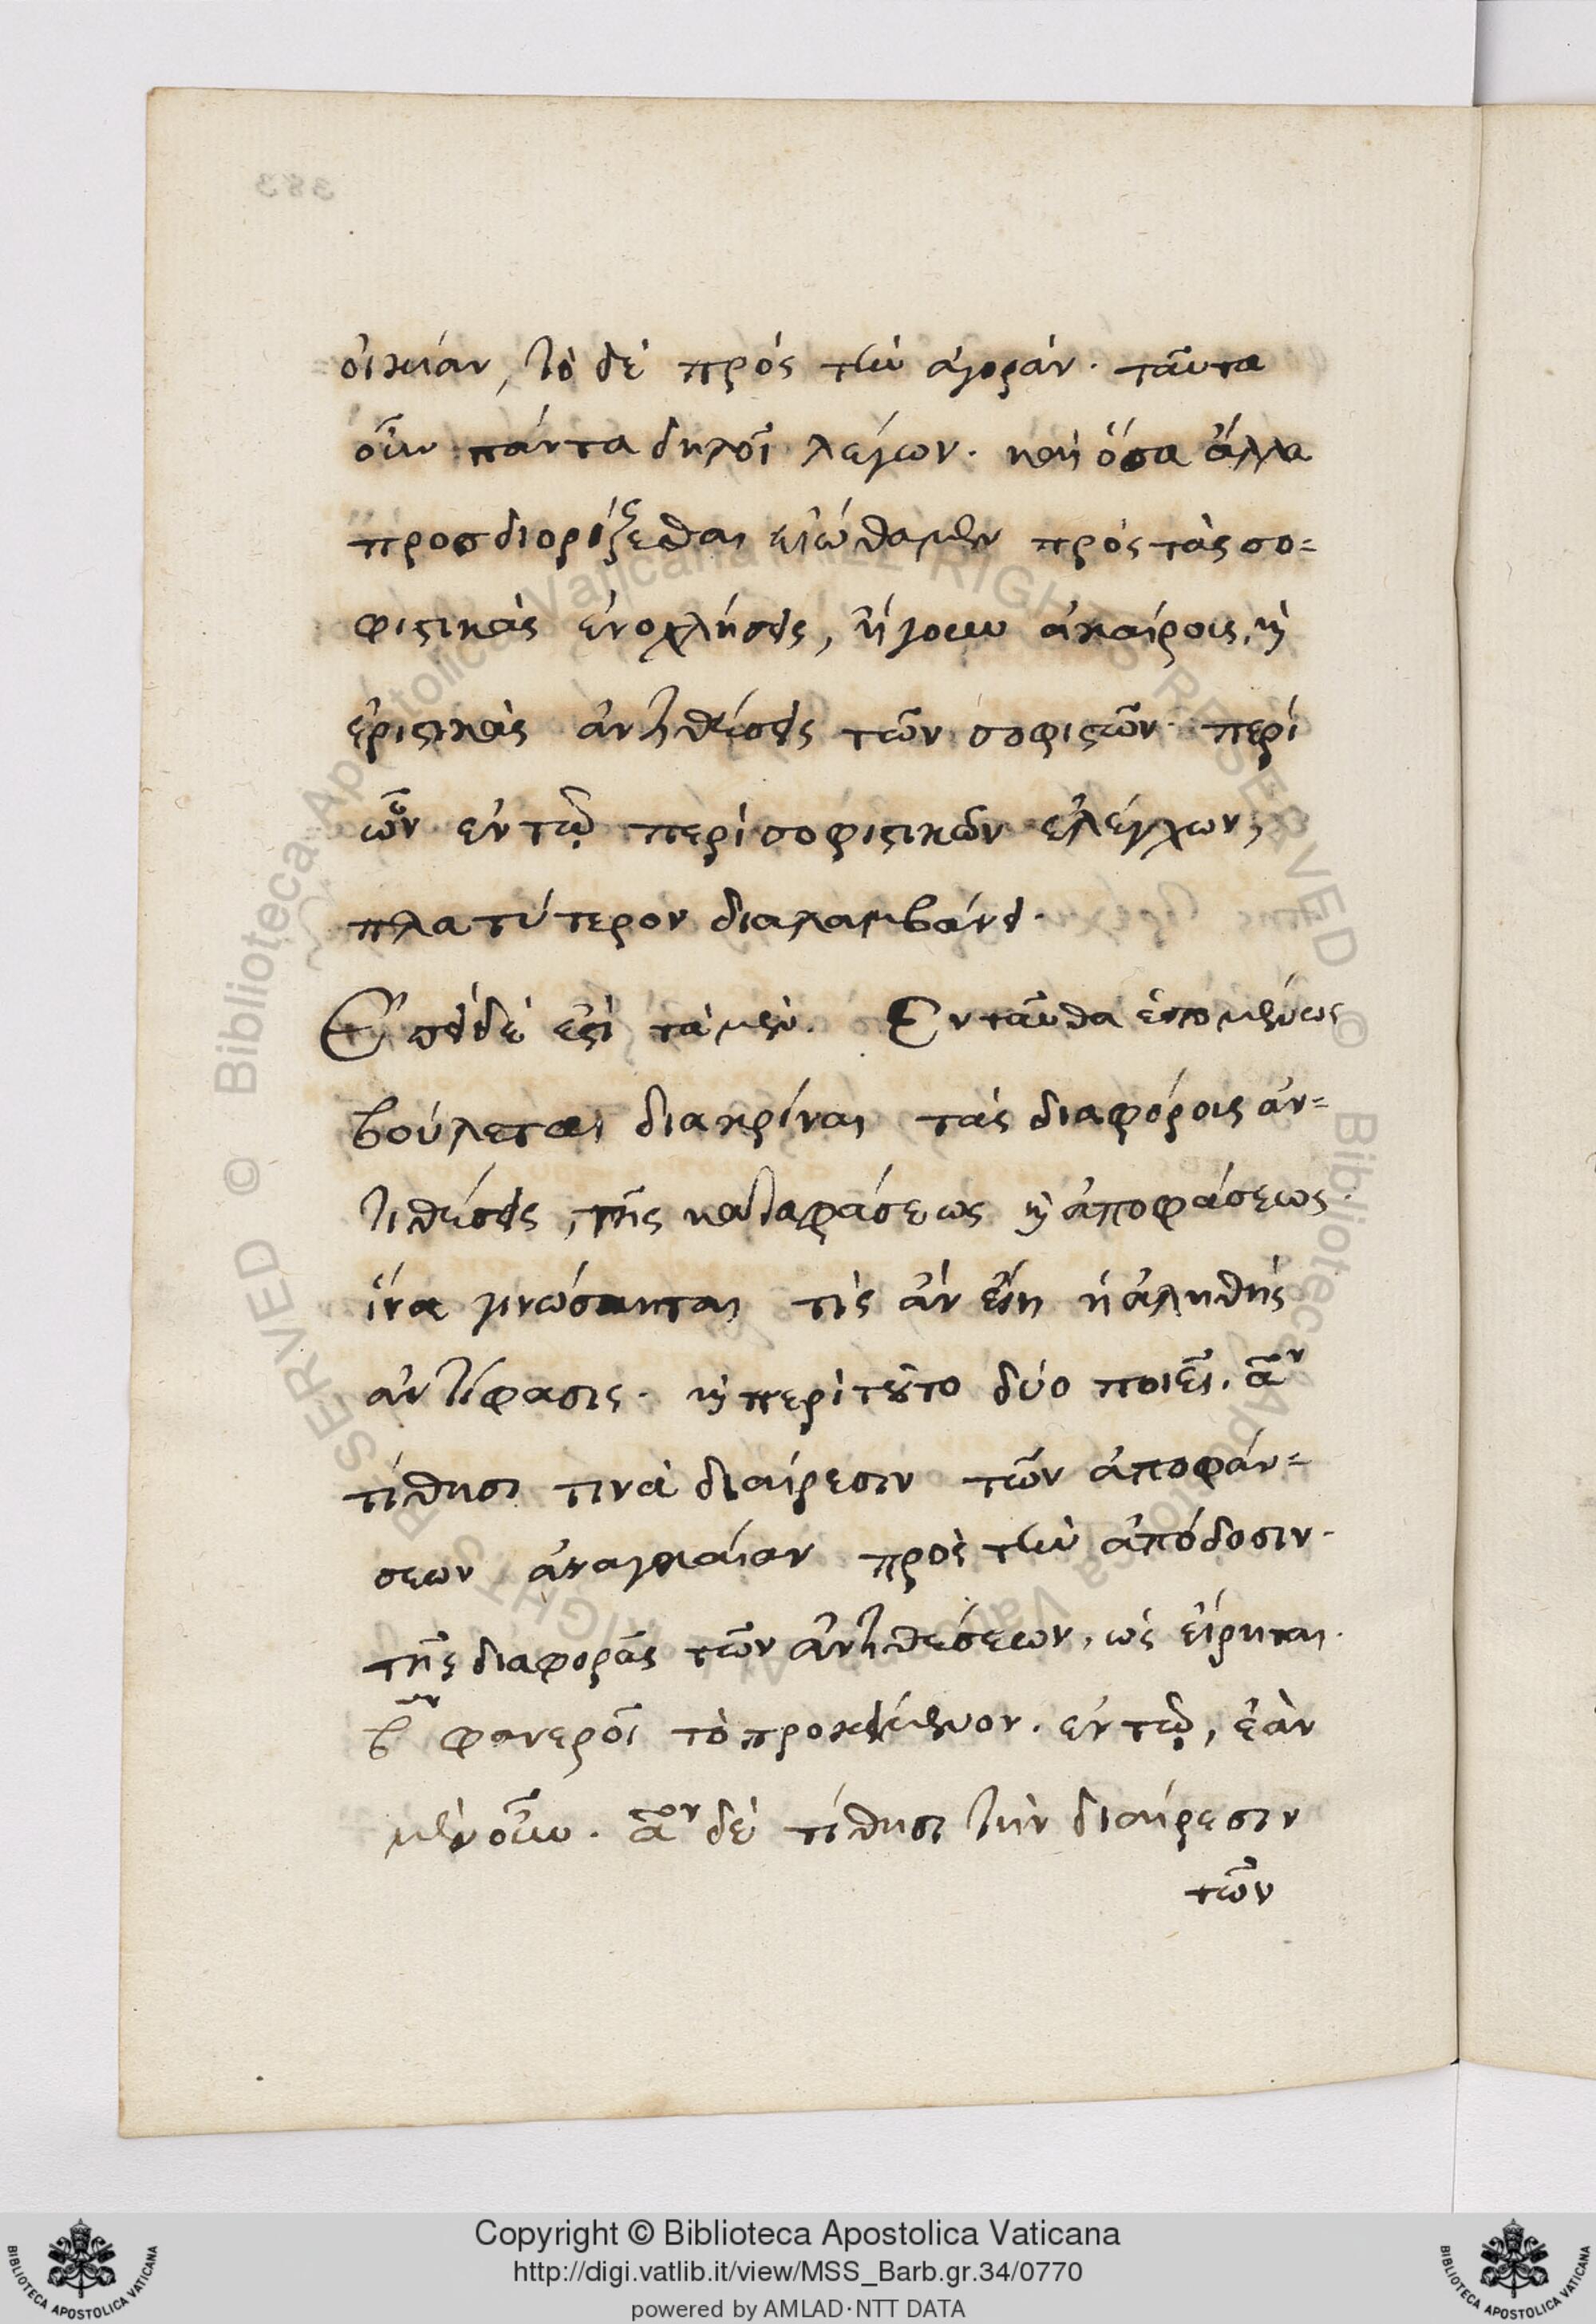 οἰκίαν, τὸ δὲ πρὸς τὴν ἀγοράν. ταῦτα
οὖν πάντα δηλοῖ λέγων. καὶ ὅσα ἄλλα
προσδιορίζεσθαι εἰώθαμεν πρὸς τὰς σο=
φιστικὰς ἐνοχλήσεις, ἤγουν ἀκαίρους, καὶ
ἐριστικὰς ἀντιθέσεις τῶν σοφιστῶν. περὶ
ὧν ἐν τῷ περὶ σοφιστικῶν ἐλέγχων,
πλατύτερον διαλαμβάνει.
Ἐπεὶ δέ ἐστι τὰ μέν. Ἐνταῦθα ἑπομένως
βούλεται διακρίναι τὰς διαφόρους ἀν=
τιθέσεις, τῆς καταφάσεως καὶ ἀποφάσεως.
ἵνα γνώσηται τίς ἂν εἴη ἡ ἀληθὴς
ἀντίφασις. καὶ περὶ τούτο δύο ποιεῖ. αον
τίθησι τινὰ διαίρεσιν τῶν ἀποφάν=
σεων ἀναγκαίαν πρὸς τὴν ἀπόδοσιν.
τῆς διαφορᾶς τῶν ἀντιθέσεων, ὡς εἴρηται.
βον φανεροῖ τὸ προκείμενον. ἐν τῷ, ἐὰν
μὲν οὖν. αον δὲ τίθησι τὴν διαίρεσιν
τῶν
383
Copyright © Biblioteca Apostolica Vaticana
http://digi.vatlib.it/view/MSS_Barb.gr.34/0770
powered by AMLAD·NTT DATA
BIBLIOTECA APOSTOLICA VATICANA
BIBLIOTECA APOSTOLICA VATICANA
© Biblioteca Apostolica Vaticana ALL RIGHTS RESERVED
© Biblioteca Apostolica Vaticana ALL RIGHTS RESERVED